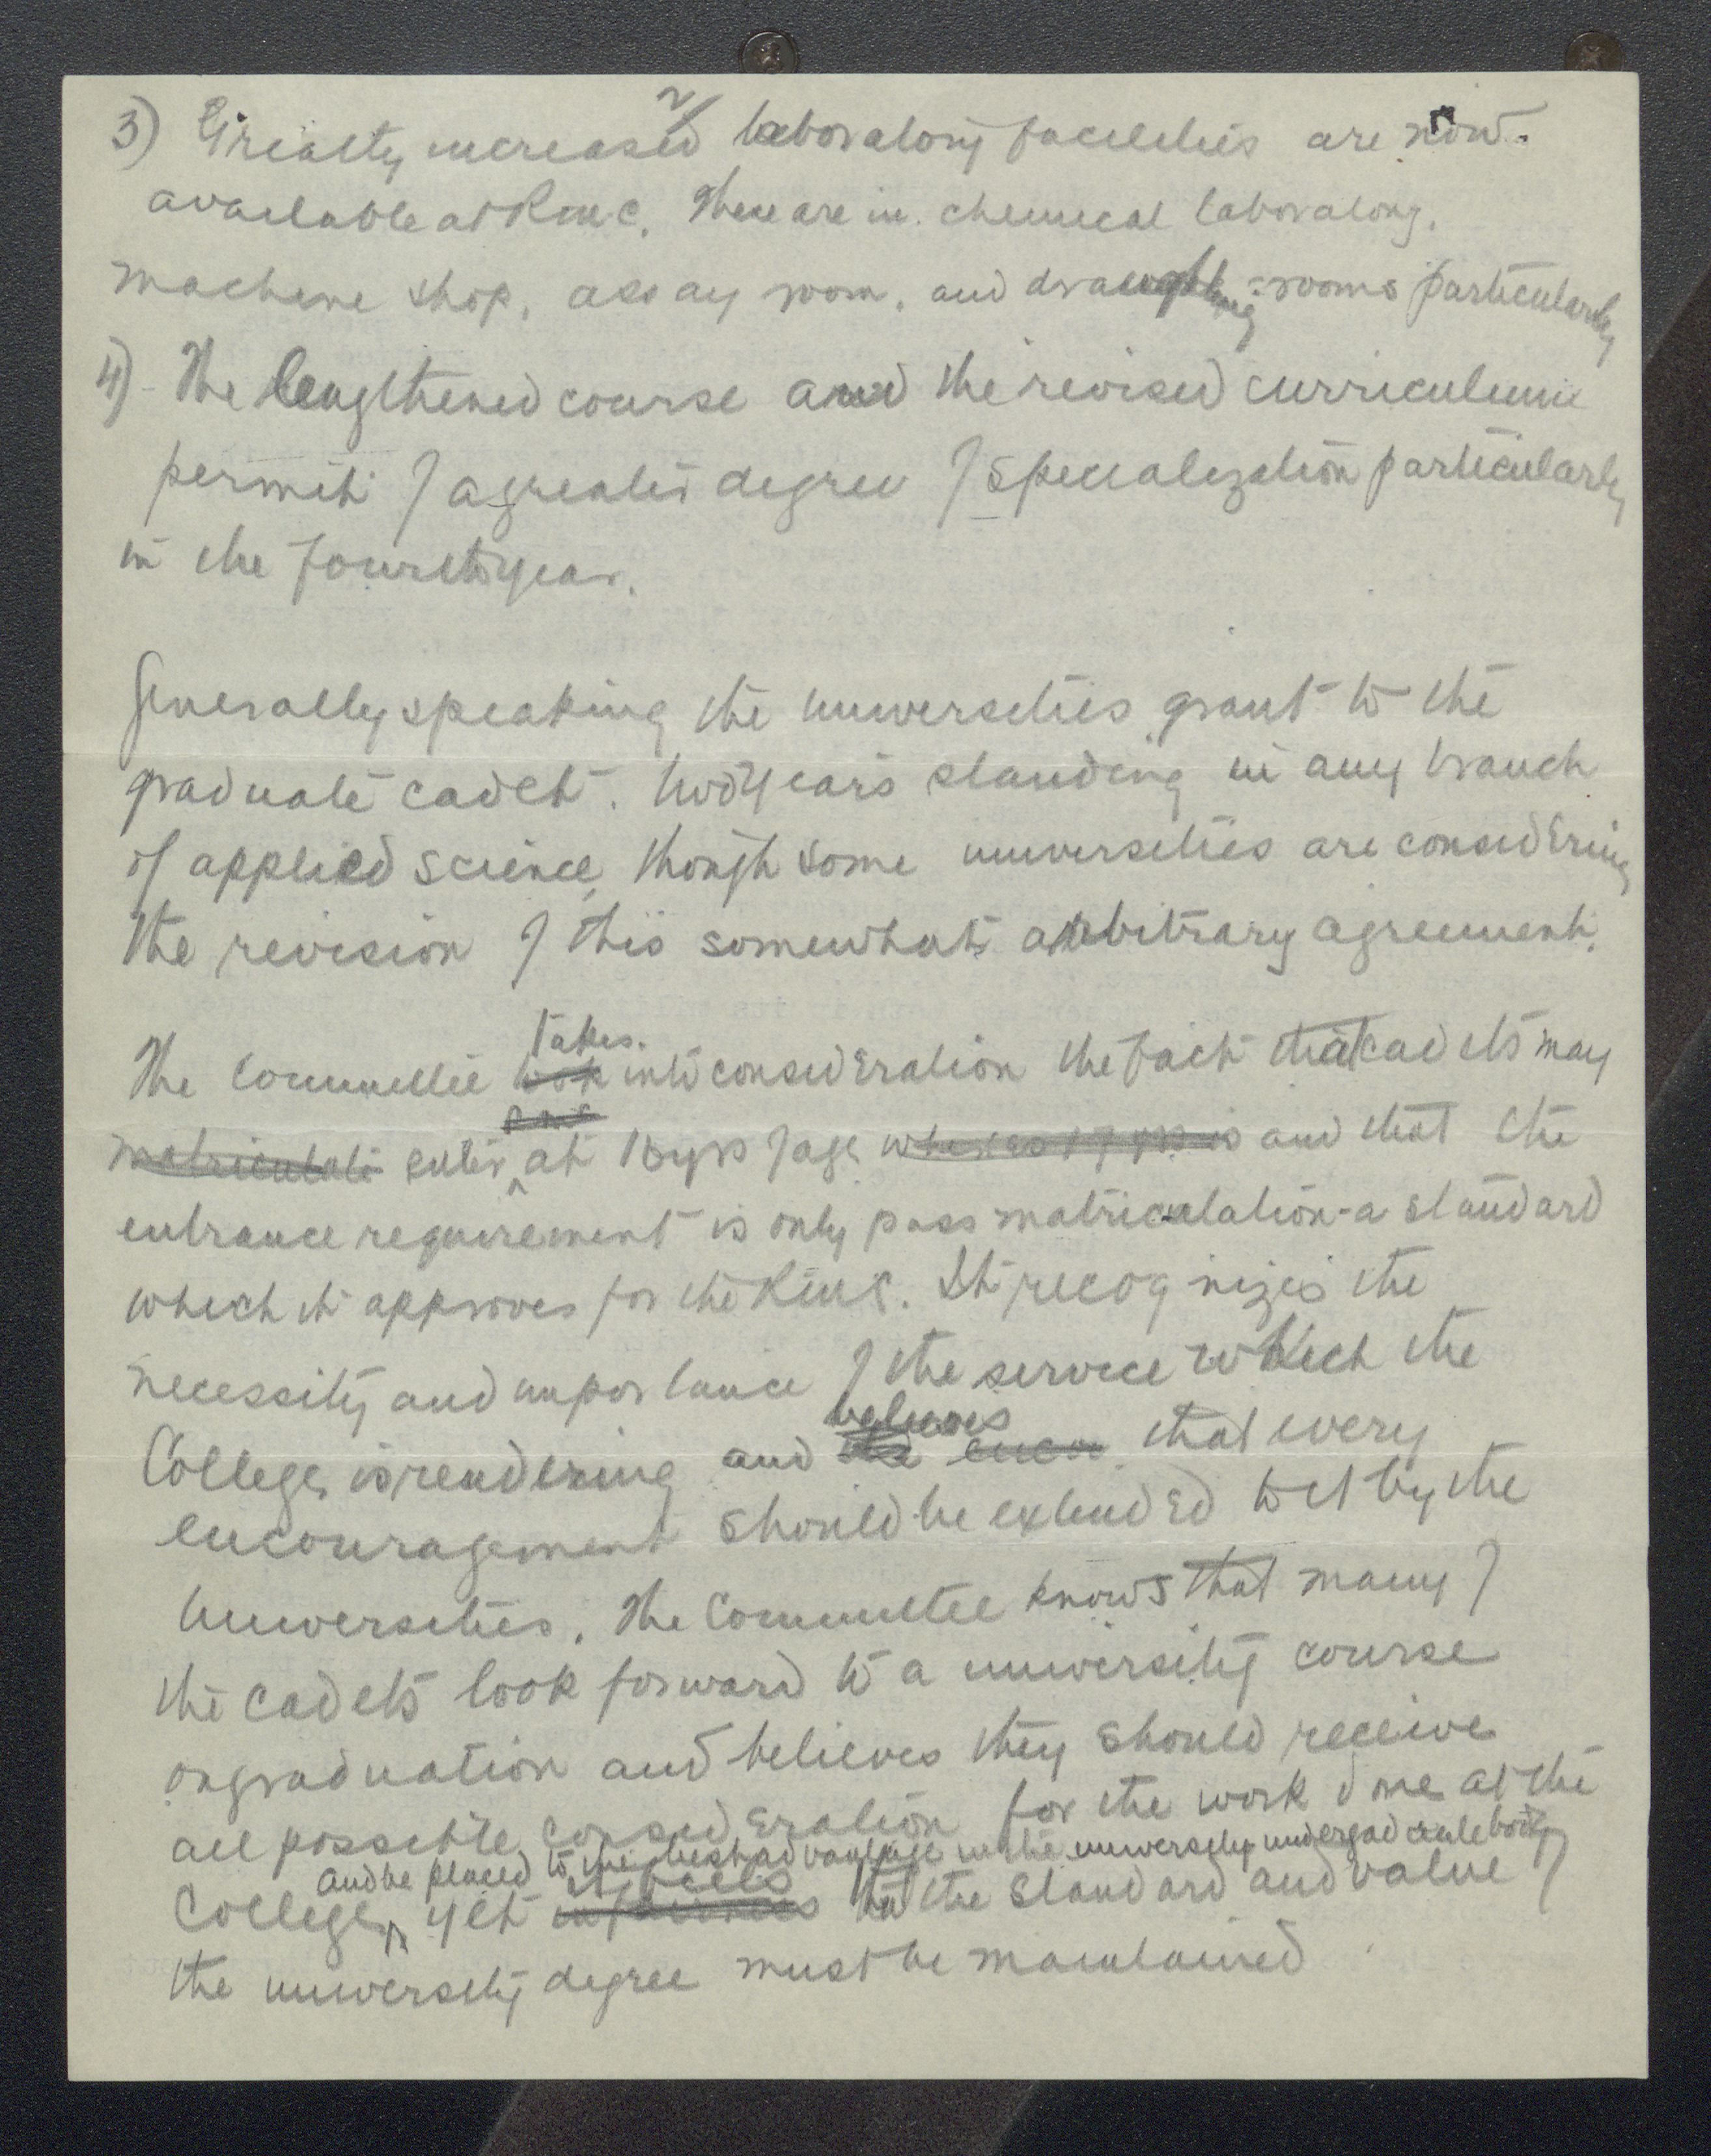 2/
3) Greatly increased laboratory facilities are now
available at RMC. These are in chemical laboratory,
machine shop, assay room, and draughting-rooms particularly
4) The lengthened course and the revised curriculum
permit of a greater degree of specialization particularly
in the fourth year.
Generally speaking the universities grant to the
graduate cadet two years standing in any branch
of applied science, though some universities are considering
the revision of this somewhat arbitrary agreement.
takes
The Committee took into consideration the fact that cadets may
RMC
matriculate enter at 16 yrs of age whereas 17 yrs is and that the
entrance requirement is only pass matriculation - a standard
which it approves for the RMC. It recognizes the
necessity and importance of the service which the
believes
College is rendering and that every
encouragement should be extended to it by the
Universities. The Committee knows that many of
the cadets look forward to a university course
on graduation and believes they should receive
all possible consideration for the work done at the
and be placed to the best advantage in the university undergraduate body
it feels
College, yet that the standard and value of
the university degree must be maintained